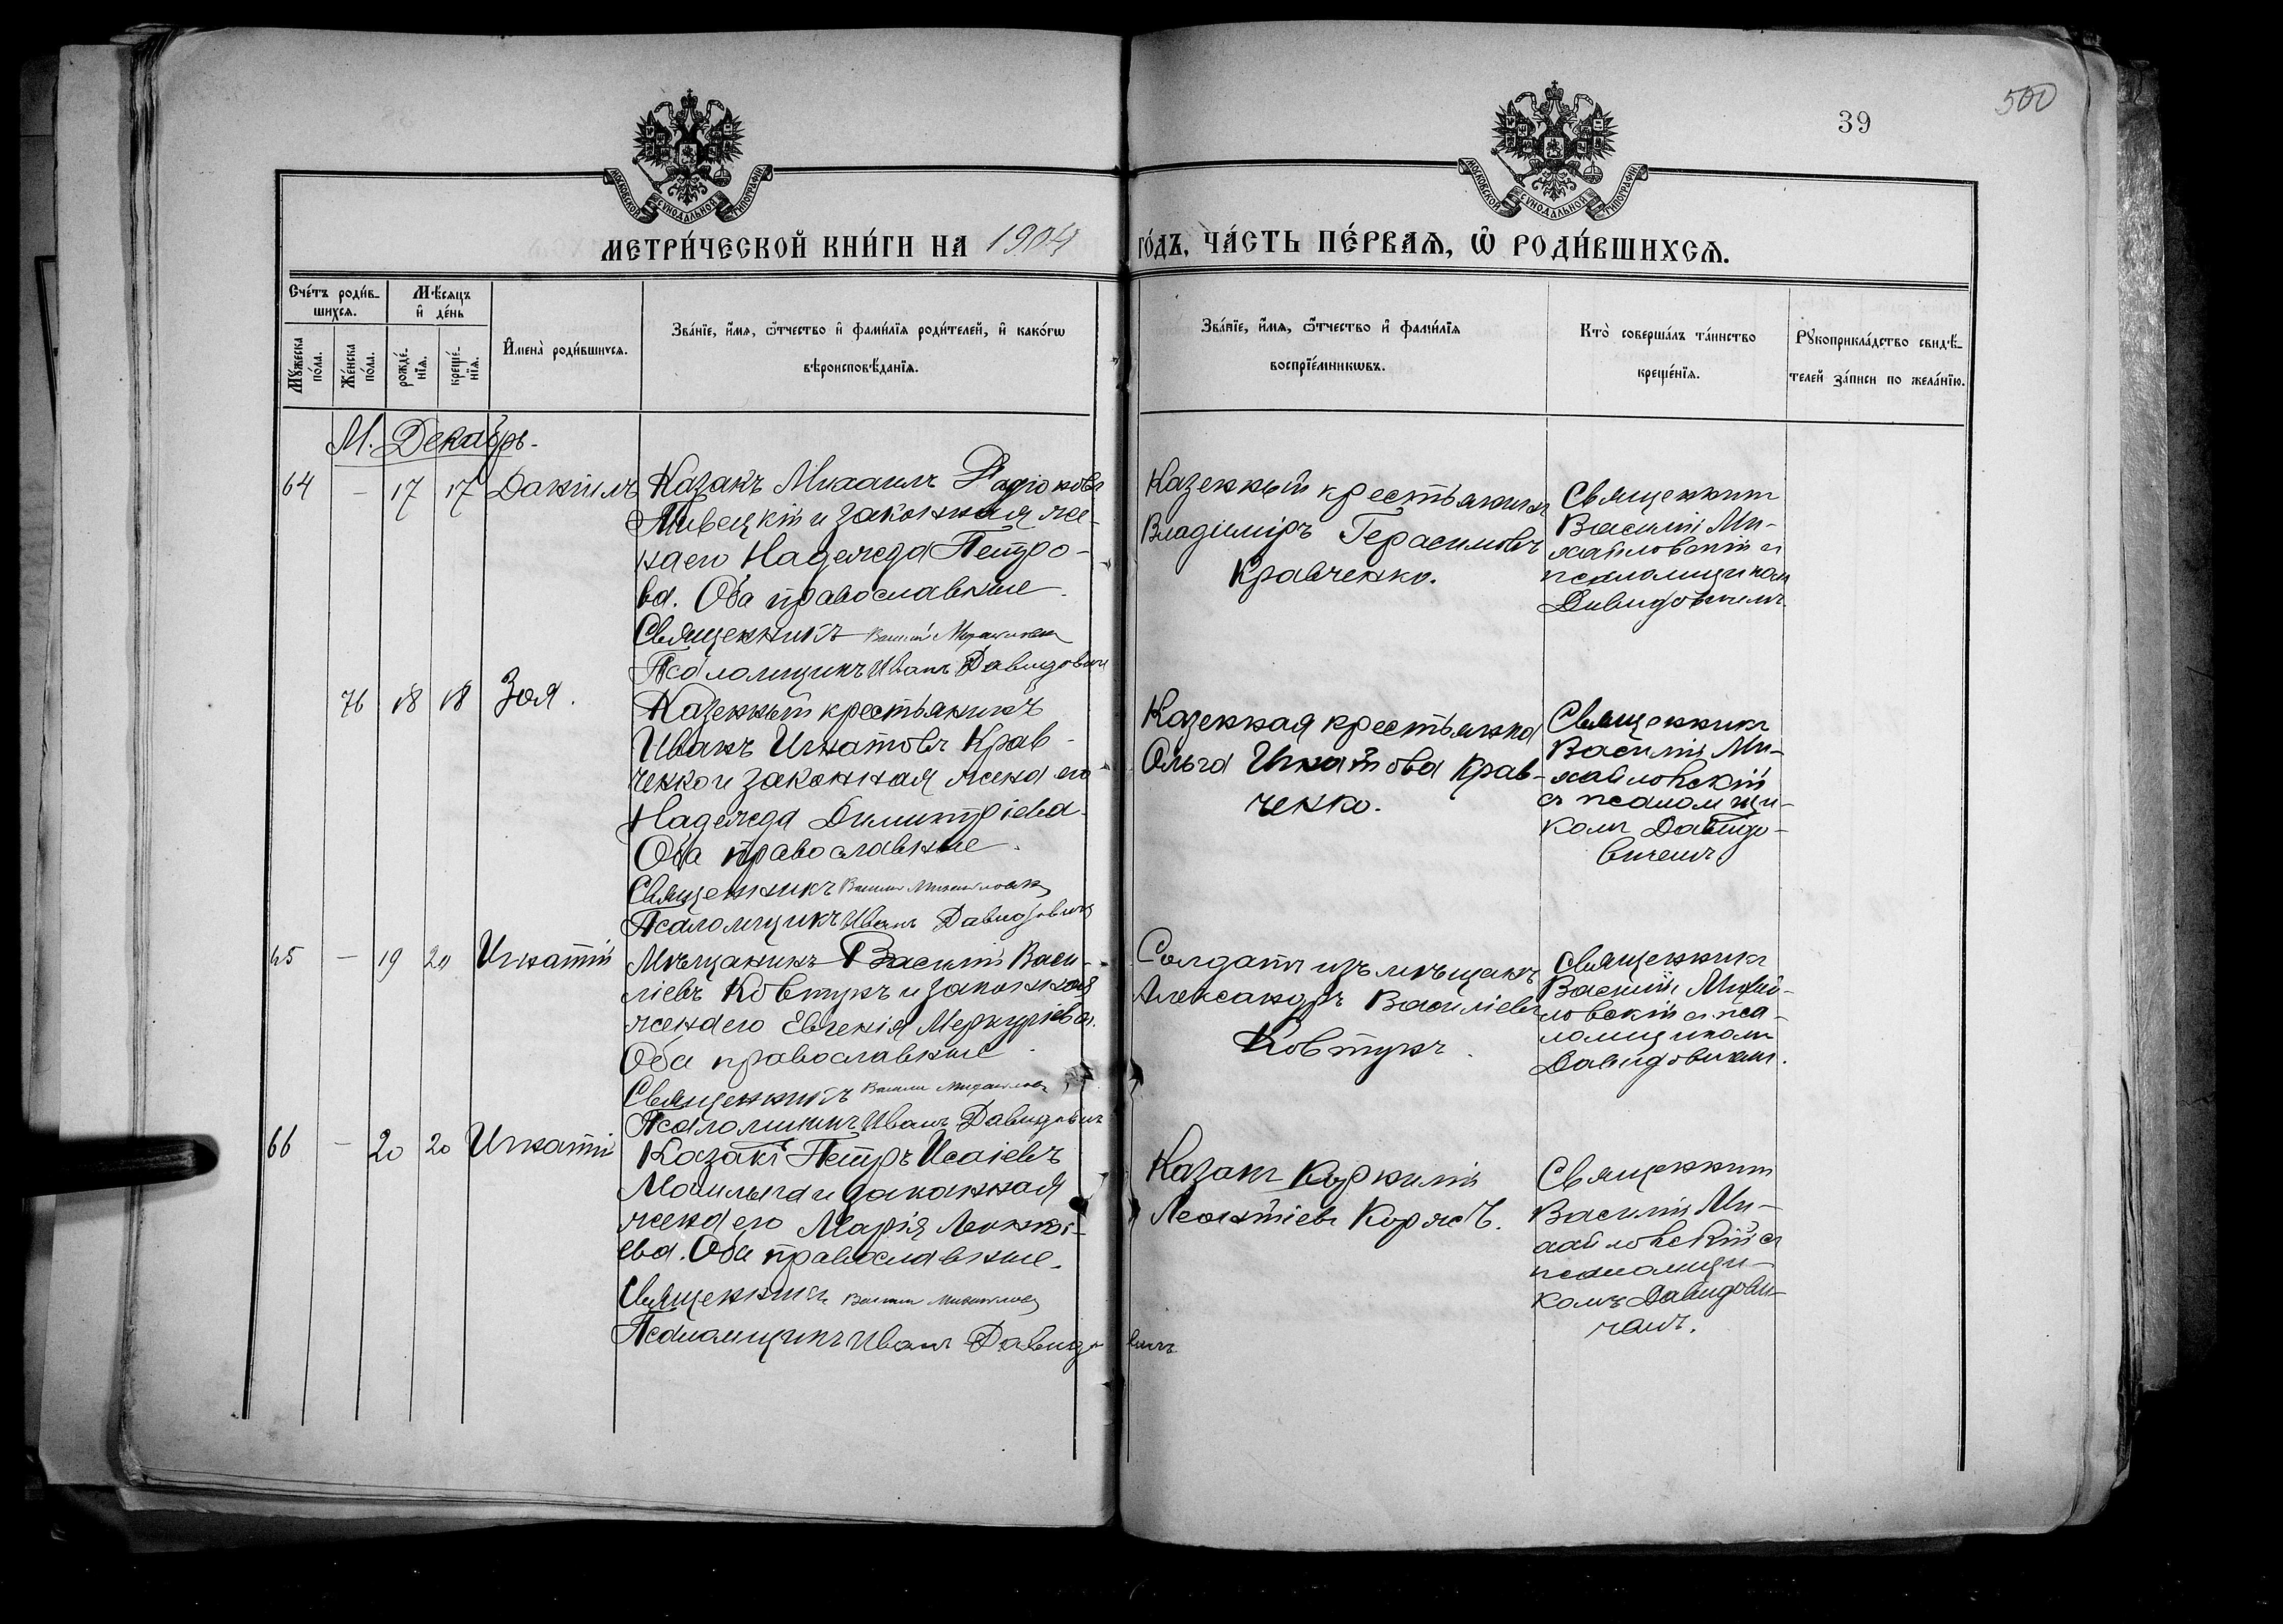 39
500
МОСКОВСКОЙ СѴНОДАЛЬНОЙ ТИПОГРАФІИ
МОСКОВСКОЙ СѴНОДАЛЬНОЙ ТИПОГРАФІИ
МЕТРИ́ЧЕСКОЙ КНИ́ГИ НА 1904 ГО́ДЪ, ЧА́СТЬ ПЕ́РВАѦ, Ѡ҆ РОДИ́ВШИХСѦ.
Сче́тъ роди́в-
шихсѧ.
Мꙋжеска по́ла.
Же́нска по́ла.
Мѣ́сѧцъ
и҆ де́нь
рожде́-
нїѧ.
креще́-
нїѧ.
И҆мена̀ роди́вшихсѧ.
Зва́нїе, и҆́мѧ, ѻ҆́тчество и҆ фами́лїѧ роди́телей, и҆ како́гѡ
вѣроисповѣ́данїѧ.
Зва́нїе, и҆́мѧ, ѻ҆́тчество и҆ фами́лїѧ
воспрїе́мникѡвъ.
Кто̀ соверша́лъ та́инство
креще́нїѧ.
Рꙋкоприкла́дство свидѣ́-
телей за́писи по жела́нїю.
М. Декабрь.
64 — 17 17 Даніилъ
Казакъ Михаилъ Родіоновъ
и законная же-
на его Надежда Петро-
ва. Оба православные.
Священникъ Василій Михайловскій
Псаломщикъ Иванъ Давидовичъ
Казенный крестьянинъ
Владиміръ Герасимовъ
Кравченко.
Священникъ
Василій Ми-
хайловскій съ
псаломщикомъ
Давидовичемъ.
76 18 18 Зоя.
Казенный крестьянинъ
Иванъ Игнатовъ Крав-
ченко и законная жена его
Надежда Димитріева.
Оба православные.
Священникъ Василій Михайловскій
Псаломщикъ Иванъ Давидовичъ
Казенная крестьянка
Ольга Игнатова Крав-
ченко.
Священникъ
Василій Ми-
хайловскій
съ псаломщи-
комъ Давидо-
вичемъ
65 — 19 20 Игнатій
Мѣщанинъ Василій Васи-
ліевъ Ковтунъ и законная
жена его Евгенія Меркуріева.
Оба православные.
Священникъ Василій Михайловскій
Псаломщикъ Иванъ Давидовичъ
Солдатъ изъ мѣщанъ
Александръ Василіевъ
Ковтунъ.
Священникъ
Василій Михай-
ловскій съ пса-
ломщикомъ
Давидовичемъ.
66 — 20 20 Игнатій
Казакъ Петръ Исаіевъ
и законная
жена его Марія Леонті-
ева. Оба православные.
Священникъ Василій Михайловскій
Псаломщикъ Иванъ Давидовичъ
Казакъ Корнилій
Леонтіевъ Коржъ.
Священникъ
Василій Ми-
хайловскій съ
псаломщи-
комъ Давидови-
чемъ.